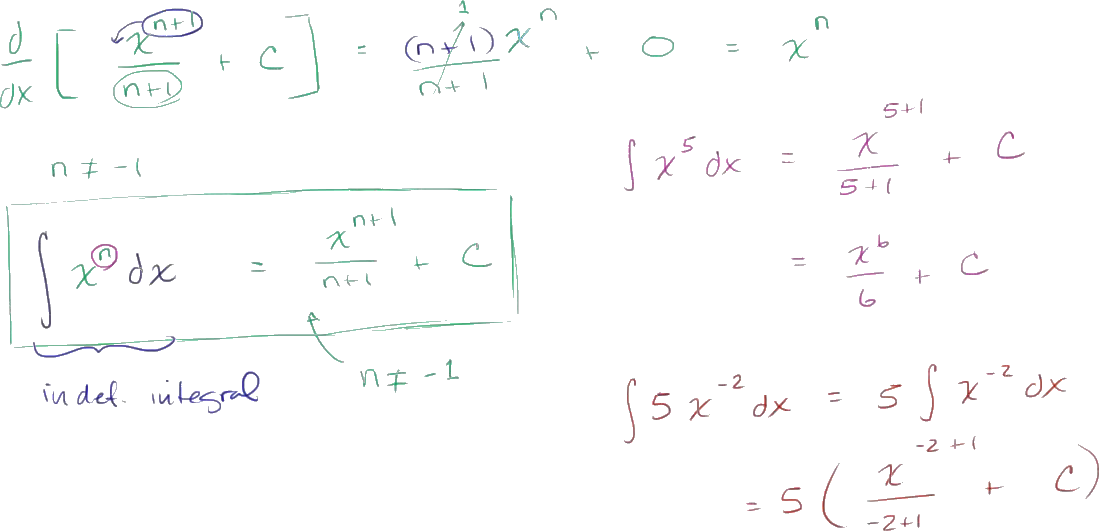 d/dx [ x^(n+1)/(n+1) + C ] = (n+1)x^n/(n+1) + 0 = x^n
1
n ≠ -1
∫ x^n dx = x^(n+1)/(n+1) + C
indef. integral
n ≠ -1
∫ x^5 dx = x^(5+1)/(5+1) + C
= x^6/6 + C
∫ 5 x^(-2) dx = 5 ∫ x^(-2) dx
= 5 ( x^(-2+1)/(-2+1) + C )